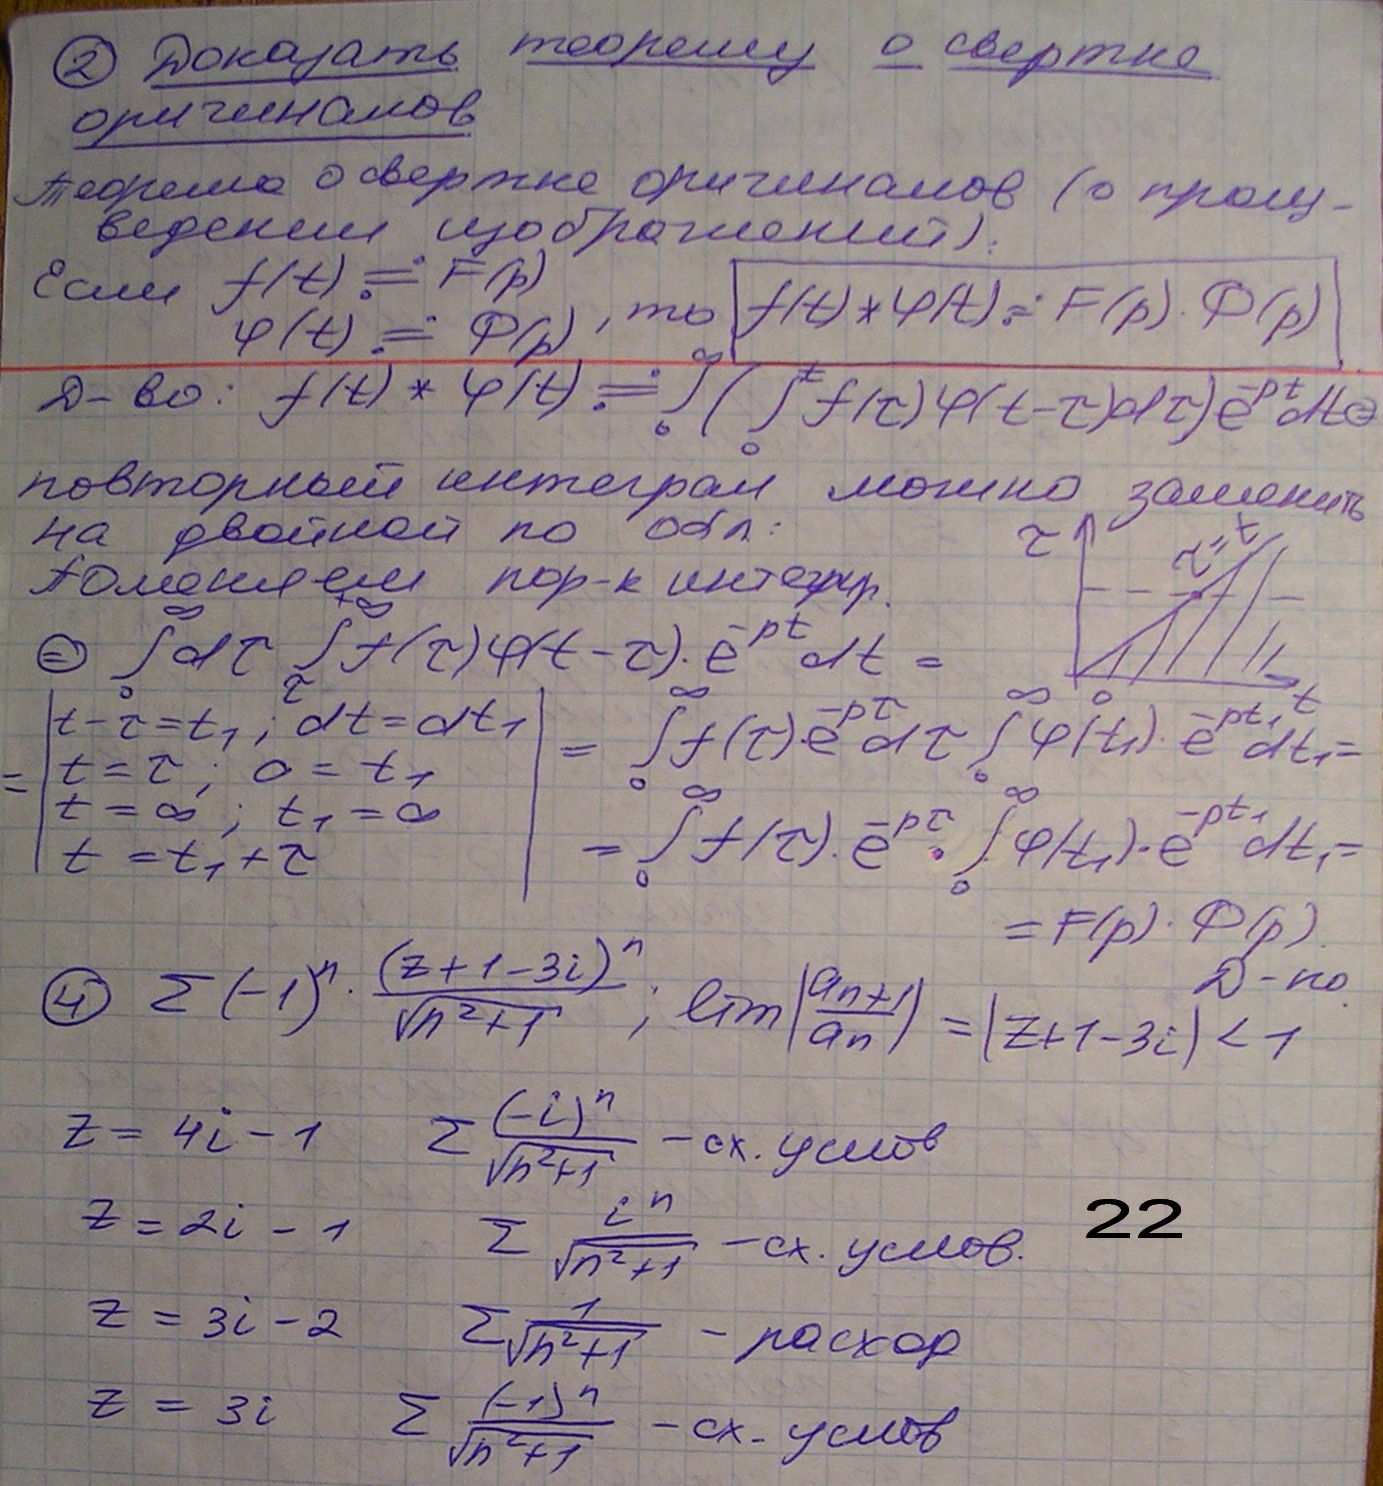 ② Доказать теорему о свертке
оригиналов
Теорема о свертке оригиналов (о произ-
ведении изображений).
Если f(t) ≓ F(p)
φ(t) ≓ Φ(p), то f(t) * φ(t) ≓ F(p) · Φ(p)
Д-во: f(t) * φ(t) ≓ ∫₀^∞ ( ∫₀^t f(τ)φ(t-τ)dτ) e^{-pt} dt ⊜
повторный интеграл можно заменить
на двойной по обл:
τ τ=t 0 t
Поменяем пор-к интегр.
⊜ ∫₀^∞ dτ ∫_τ^{+∞} f(τ)φ(t-τ)·e^{-pt} dt =
= | t-τ=t₁; dt=dt₁
t=τ; 0=t₁
t=∞; t₁=∞
t=t₁+τ |
= ∫₀^∞ f(τ)·e^{-pτ} dτ ∫₀^∞ φ(t₁)·e^{-pt₁} dt₁=
= ∫₀^∞ f(τ)·e^{-pτ} · ∫₀^∞ φ(t₁)·e^{-pt₁} dt₁=
= F(p)·Φ(p).
Д-но.
④ Σ (-1)^n · (z+1-3i)^n / √(n²+1) ; lim |a_{n+1}/a_n| = |z+1-3i| < 1
z = 4i - 1 Σ (-i)^n / √(n²+1) - сх. услов
z = 2i - 1 Σ i^n / √(n²+1) - сх. услов.
22
z = 3i - 2 Σ 1 / √(n²+1) - расход
z = 3i Σ (-1)^n / √(n²+1) - сх. услов